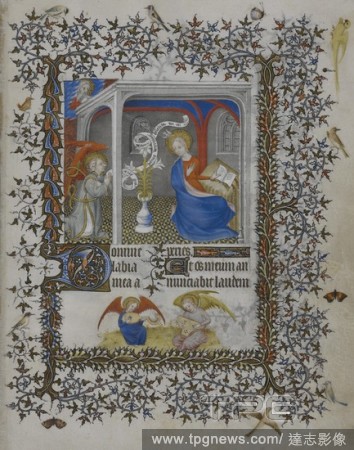 Domine
labia
mea a
peries
Et os meum an
nunciabit laudem
TPG
www.tpgnews.com/ 達志影像